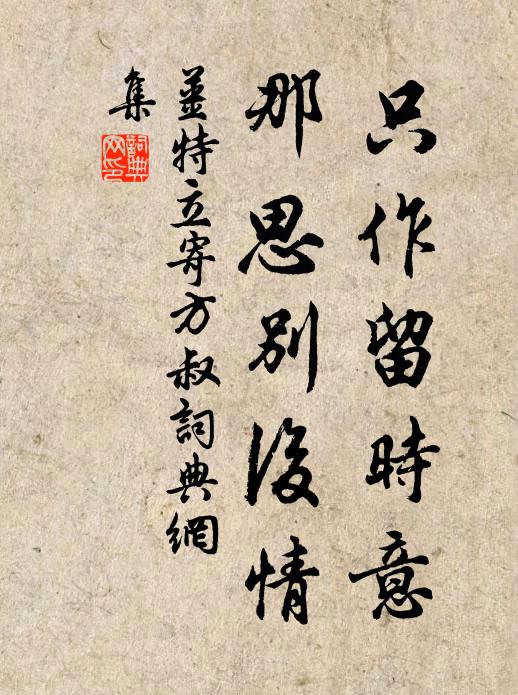 只作留時意
那思别後情
姜特立寄方叔詞典網
集
詞典
网印